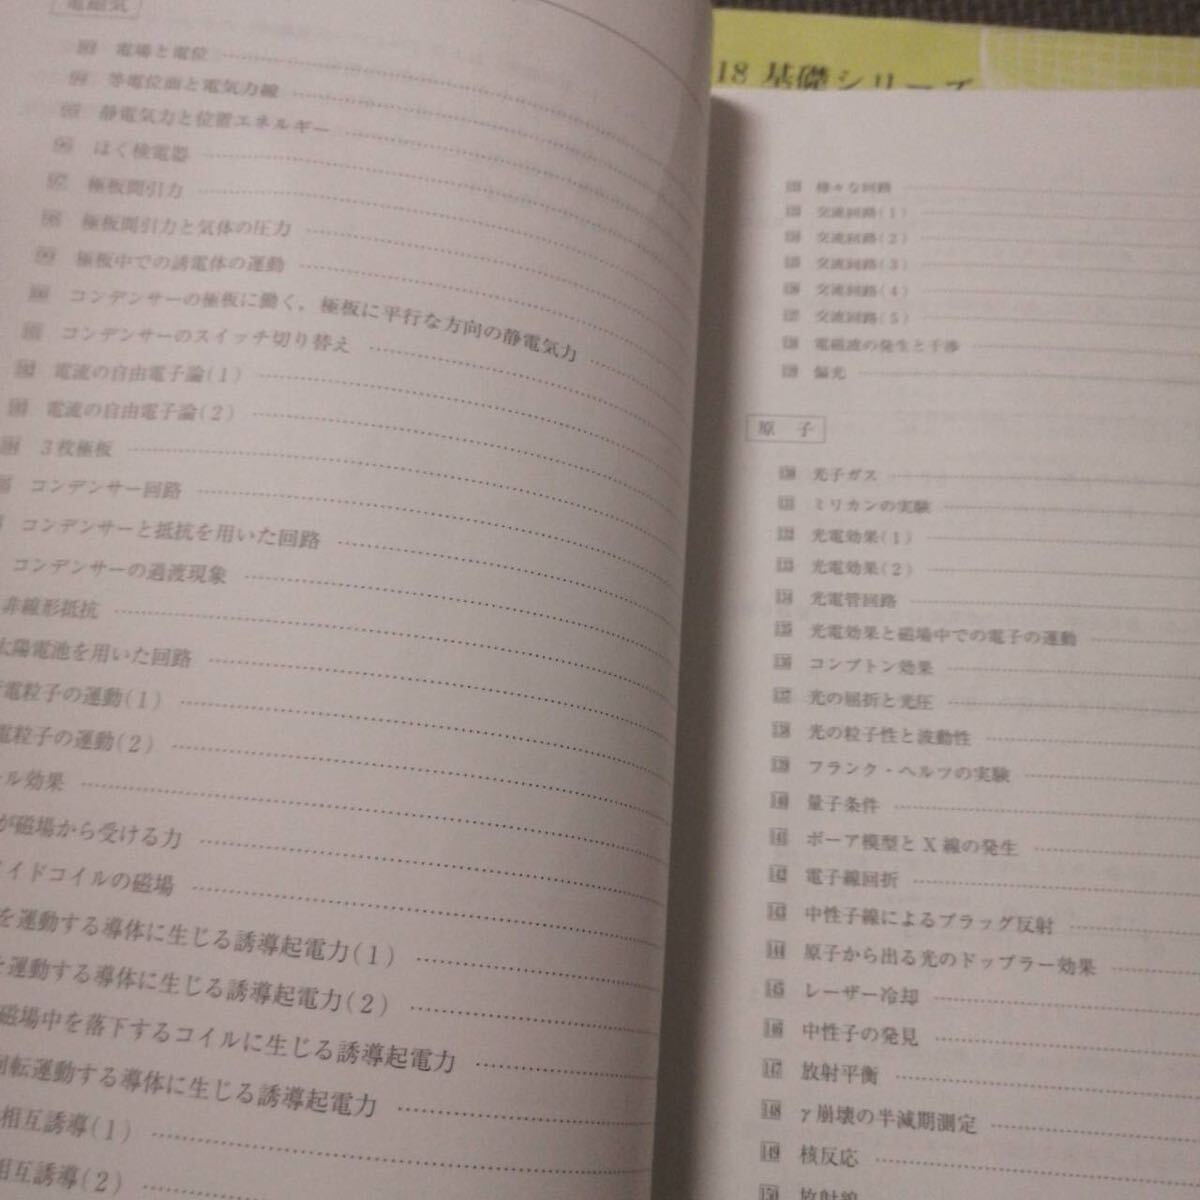 電磁気
93 電場と電位
94 等電位面と電気力線
95 静電気力と位置エネルギー
96 はく検電器
97 極板間引力
98 極板間引力と気体の圧力
99 極板中での誘電体の運動
100 コンデンサーの極板に働く，極板に平行な方向の静電気力
101 コンデンサーのスイッチ切り替え
102 電流の自由電子論(1)
103 電流の自由電子論(2)
104 3枚極板
コンデンサー回路
コンデンサーと抵抗を用いた回路
コンデンサーの過渡現象
非線形抵抗
太陽電池を用いた回路
電粒子の運動(1)
電粒子の運動(2)
ール効果
が磁場から受ける力
イドコイルの磁場
を運動する導体に生じる誘導起電力(1)
を運動する導体に生じる誘導起電力(2)
磁場中を落下するコイルに生じる誘導起電力
回転運動する導体に生じる誘導起電力
相互誘導(1)
相互誘導(2)
18 基礎シリーズ
様々な回路
交流回路(1)
交流回路(2)
125 交流回路(3)
126 交流回路(4)
127 交流回路(5)
128 電磁波の発生と干渉
129 偏光
原 子
130 光子ガス
131 ミリカンの実験
132 光電効果(1)
133 光電効果(2)
134 光電管回路
135 光電効果と磁場中での電子の運動
136 コンプトン効果
137 光の屈折と光圧
138 光の粒子性と波動性
139 フランク・ヘルツの実験
140 量子条件
141 ボーア模型とX線の発生
142 電子線回折
143 中性子線によるブラッグ反射
144 原子から出る光のドップラー効果
145 レーザー冷却
146 中性子の発見
147 放射平衡
148 γ崩壊の半減期測定
149 核反応
150 放射線